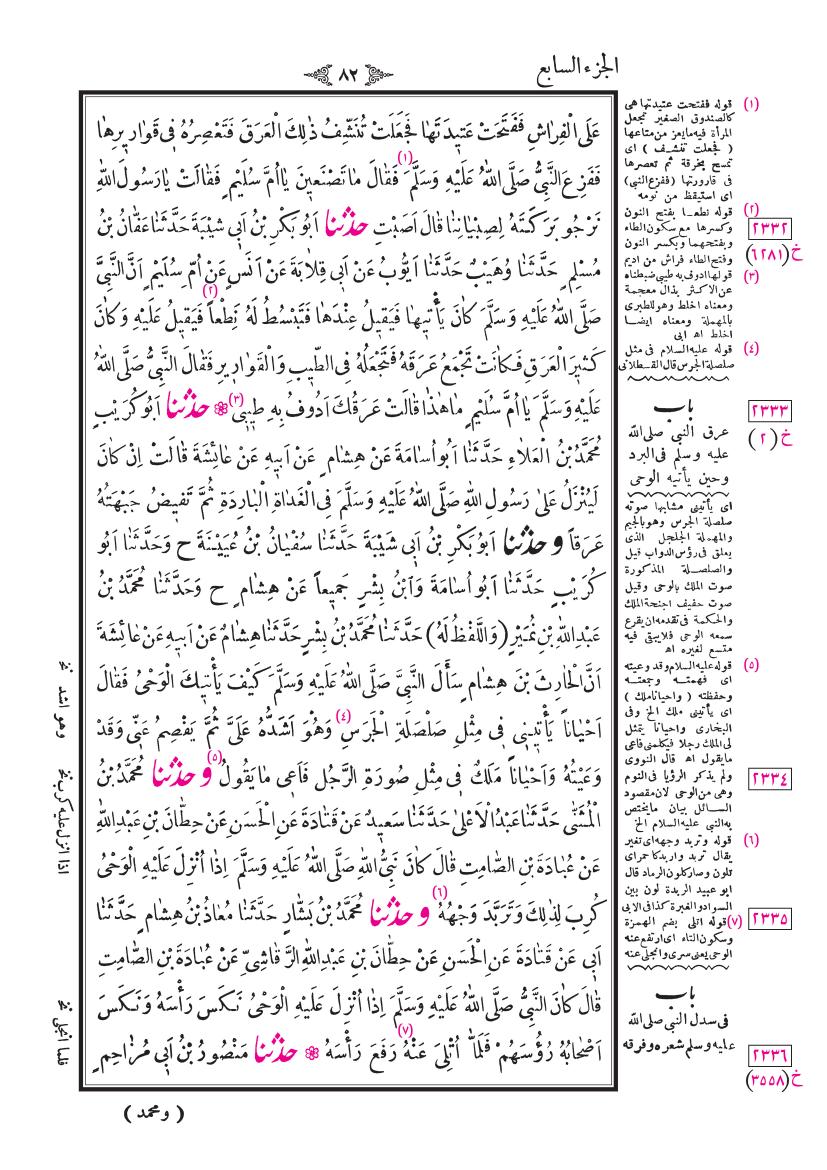 الجزء السابع
٨٢
عَلَى الْفِرَاشِ فَفَتَحَتْ عَتِيدَتَهَا فَجَعَلَتْ تُنَشِّفُ ذٰلِكَ الْعَرَقَ فَتَعْصِرُهُ فِي قَوَارِيرِهَا
(١)
فَفَزِعَ النَّبِيُّ صَلَّى اللهُ عَلَيْهِ وَسَلَّمَ فَقَالَ مَا تَصْنَعِينَ يَا اُمَّ سُلَيْمٍ فَقَالَتْ يَا رَسُولَ اللهِ
نَرْجُو بَرَكَتَهُ لِصِبْيَانِنَا قَالَ اَصَبْتِ حدثنا اَبُو بَكْرِ بْنُ اَبِي شَيْبَةَ حَدَّثَنَا عَفَّانُ بْنُ
مُسْلِمٍ حَدَّثَنَا وُهَيْبٌ حَدَّثَنَا اَيُّوبُ عَنْ اَبِي قِلَابَةَ عَنْ اَنَسٍ عَنْ اُمِّ سُلَيْمٍ اَنَّ النَّبِيَّ
(٢)
صَلَّى اللهُ عَلَيْهِ وَسَلَّمَ كَانَ يَأْتِيهَا فَيَقِيلُ عِنْدَهَا فَتَبْسُطُ لَهُ نِطْعاً فَيَقِيلُ عَلَيْهِ وَكَانَ
كَثِيرَ الْعَرَقِ فَكَانَتْ تَجْمَعُ عَرَقَهُ فَتَجْعَلُهُ فِي الطِّيبِ وَالْقَوَارِيرِ فَقَالَ النَّبِيُّ صَلَّى اللهُ
عَلَيْهِ وَسَلَّمَ يَا اُمَّ سُلَيْمٍ مَا هٰذَا قَالَتْ عَرَقُكَ اَدُوفُ بِهِ طِيبِي (٣) حدثنا اَبُو كُرَيْبٍ
مُحَمَّدُ بْنُ الْعَلَاءِ حَدَّثَنَا اَبُو اُسَامَةَ عَنْ هِشَامٍ عَنْ اَبِيهِ عَنْ عَائِشَةَ قَالَتْ اِنْ كَانَ
لَيُنْزَلُ عَلَى رَسُولِ اللهِ صَلَّى اللهُ عَلَيْهِ وَسَلَّمَ فِي الْغَدَاةِ الْبَارِدَةِ ثُمَّ تَفِيضُ جَبْهَتُهُ
عَرَقاً وحدثنا اَبُو بَكْرِ بْنُ اَبِي شَيْبَةَ حَدَّثَنَا سُفْيَانُ بْنُ عُيَيْنَةَ ح وَحَدَّثَنَا اَبُو
كُرَيْبٍ حَدَّثَنَا اَبُو اُسَامَةَ وَابْنُ بِشْرٍ جَمِيعاً عَنْ هِشَامٍ ح وَحَدَّثَنَا مُحَمَّدُ بْنُ
عَبْدِ اللهِ بْنِ نُمَيْرٍ (وَاللَّفْظُ لَهُ) حَدَّثَنَا مُحَمَّدُ بْنُ بِشْرٍ حَدَّثَنَا هِشَامٌ عَنْ اَبِيهِ عَنْ عَائِشَةَ
اَنَّ الْحَارِثَ بْنَ هِشَامٍ سَأَلَ النَّبِيَّ صَلَّى اللهُ عَلَيْهِ وَسَلَّمَ كَيْفَ يَأْتِيكَ الْوَحْيُ فَقَالَ
اَحْيَاناً يَأْتِينِي فِي مِثْلِ صَلْصَلَةِ الْجَرَسِ (٤) وَهُوَ اَشَدُّهُ عَلَيَّ ثُمَّ يَفْصِمُ عَنِّي وَقَدْ
وَعَيْتُهُ وَاَحْيَاناً مَلَكٌ فِي مِثْلِ صُورَةِ الرَّجُلِ فَاَعِي مَا يَقُولُ (٥) وحدثنا مُحَمَّدُ بْنُ
الْمُثَنَّى حَدَّثَنَا عَبْدُ الْاَعْلَى حَدَّثَنَا سَعِيدٌ عَنْ قَتَادَةَ عَنِ الْحَسَنِ عَنْ حِطَّانَ بْنِ عَبْدِ اللهِ
عَنْ عُبَادَةَ بْنِ الصَّامِتِ قَالَ كَانَ نَبِيُّ اللهِ صَلَّى اللهُ عَلَيْهِ وَسَلَّمَ اِذَا اُنْزِلَ عَلَيْهِ الْوَحْيُ
كُرِبَ لِذٰلِكَ وَتَرَبَّدَ وَجْهُهُ (٦) وحدثنا مُحَمَّدُ بْنُ بَشَّارٍ حَدَّثَنَا مُعَاذُ بْنُ هِشَامٍ حَدَّثَنَا
اَبِي عَنْ قَتَادَةَ عَنِ الْحَسَنِ عَنْ حِطَّانَ بْنِ عَبْدِ اللهِ الرَّقَاشِيِّ عَنْ عُبَادَةَ بْنِ الصَّامِتِ
قَالَ كَانَ النَّبِيُّ صَلَّى اللهُ عَلَيْهِ وَسَلَّمَ اِذَا اُنْزِلَ عَلَيْهِ الْوَحْيُ نَكَسَ رَأْسَهُ وَنَكَسَ
(٧)
اَصْحَابُهُ رُؤُسَهُمْ فَلَمَّا اُتْلِيَ عَنْهُ رَفَعَ رَأْسَهُ حدثنا مَنْصُورُ بْنُ اَبِي مُزَاحِمٍ
( ومحمد )
(١) قوله ففتحت عتيدتها هى
كالصندوق الصغير تجعل
المرأة فيه ما يعز من متاعها
( فجعلت تنشف ) اى
تمسح بخرقة ثم تعصرها
فى قارورتها (ففزع النبى)
اى استيقظ من نومه
(٢) قوله نطعا بفتح النون
وكسرها مع سكون الطاء
وبفتحهما وبكسر النون
وفتح الطاء فراش من اديم
(٣) قولها ادوف به طيبى ضبطناه
عن الاكثر بذال معجمة
ومعناه اخلط وهو للطبرى
بالمهملة ومعناه ايضا
اخلط اه ابى
(٤) قوله عليه السلام فى مثل
صلصلة الجرس قال القسطلانى
باب
عرق النبي صلى الله
عليه وسلم فى البرد
وحين يأتيه الوحى
اى يأتينى مشابها صوته
صلصلة الجرس وهو بالجيم
والمهملة الجلجل الذى
يعلق فى رؤس الدواب قيل
والصلصلة المذكورة
صوت الملك بالوحى وقيل
صوت حفيف اجنحة الملك
والحكمة فى تقدمه ان يقرع
سمعه الوحى فلا يبقى فيه
متسع لغيره اه
(٥) قوله عليه السلام وقد وعيته
اى فهمته وجمعته
وحفظته ( واحيانا ملك )
اى يأتينى ملك الخ وفى
البخارى واحيانا يتمثل
لى الملك رجلا فيكلمنى فاعى
ما يقول اه قال النووى
ولم يذكر الرؤيا فى النوم
وهى من الوحى لان مقصود
السائل بيان ما يختص
به النبى عليه السلام الخ
(٦) قوله وتربد وجهه اى تغير
يقال تربد واربد كاحمر اى
تلون وصار كلون الرماد قال
ابو عبيد الربدة لون بين
السواد والغبرة كذا فى الابى
(٧) قوله اتلى بضم الهمزة
وسكون التاء اى ارتفع عنه
الوحى يعنى سرى وانجلى عنه
باب
فى سدل النبى صلى الله
عليه وسلم شعره وفرقه
٢٣٣٢
خ (٦٢٨١)
٢٣٣٣
خ (٢)
٢٣٣٤
٢٣٣٥
٢٣٣٦
خ (٣٥٥٨)
وهو اشد نخ
اذا انزل عليه كرب نخ
فلما انجلى نخ